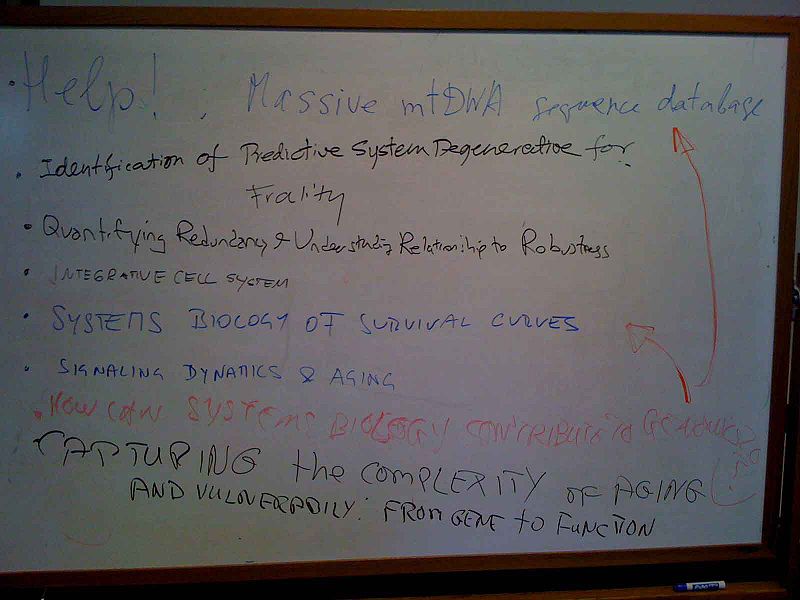 • Help! : Massive mtDNA sequence database
• Identification of Predictive System Degenerative for
Frality
• Quantifying Redundancy & Understading Relationship to Robustness
• INTEGRATIVE CELL SYSTEM
• SYSTEMS BIOLOGY OF SURVIVAL CURVES
• SIGNALING DYNAMICS & AGING
• HOW CAN SYSTEMS BIOLOGY CONTRIBUTE TO
CAPTURING the COMPLEXITY OF AGING
AND VULNERABILY: FROM GENE to FUNCTION